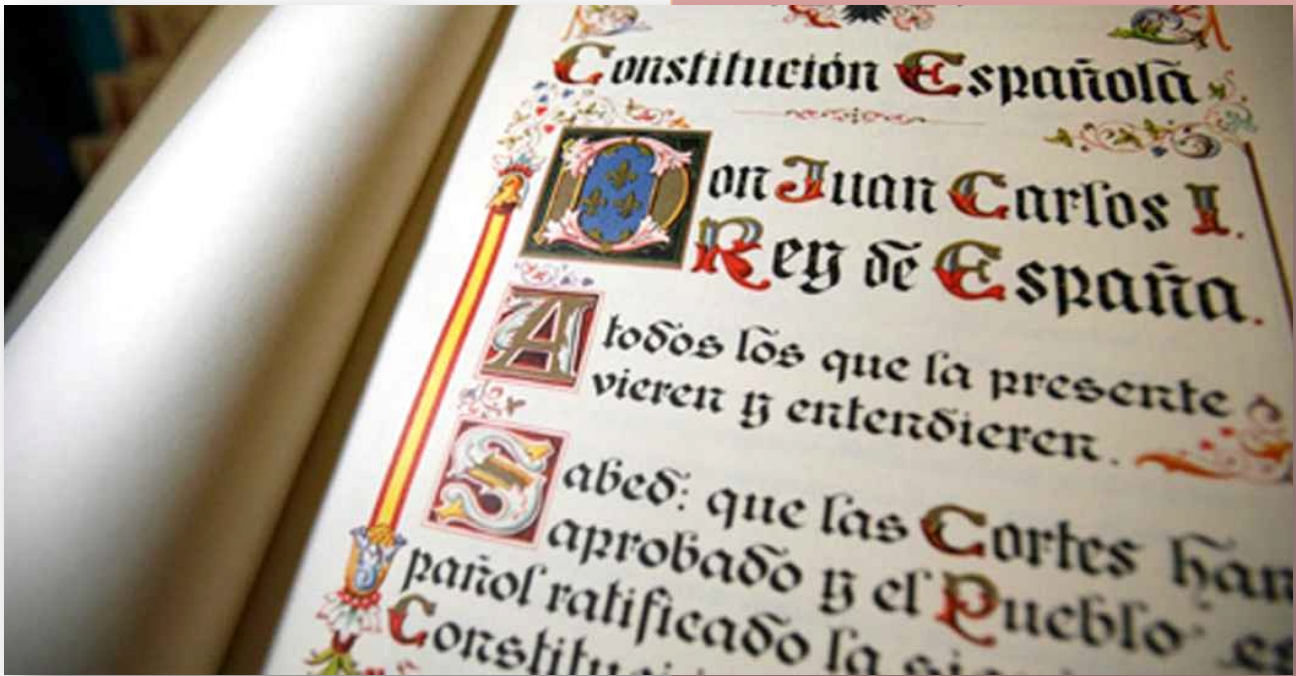 Constitución Española
Don Juan Carlos I.
Rey de España.
A todos los que la presente
vieren y entendieren.
Sabed: que las Cortes han
aprobado y el Pueblo es
pañol ratificado la